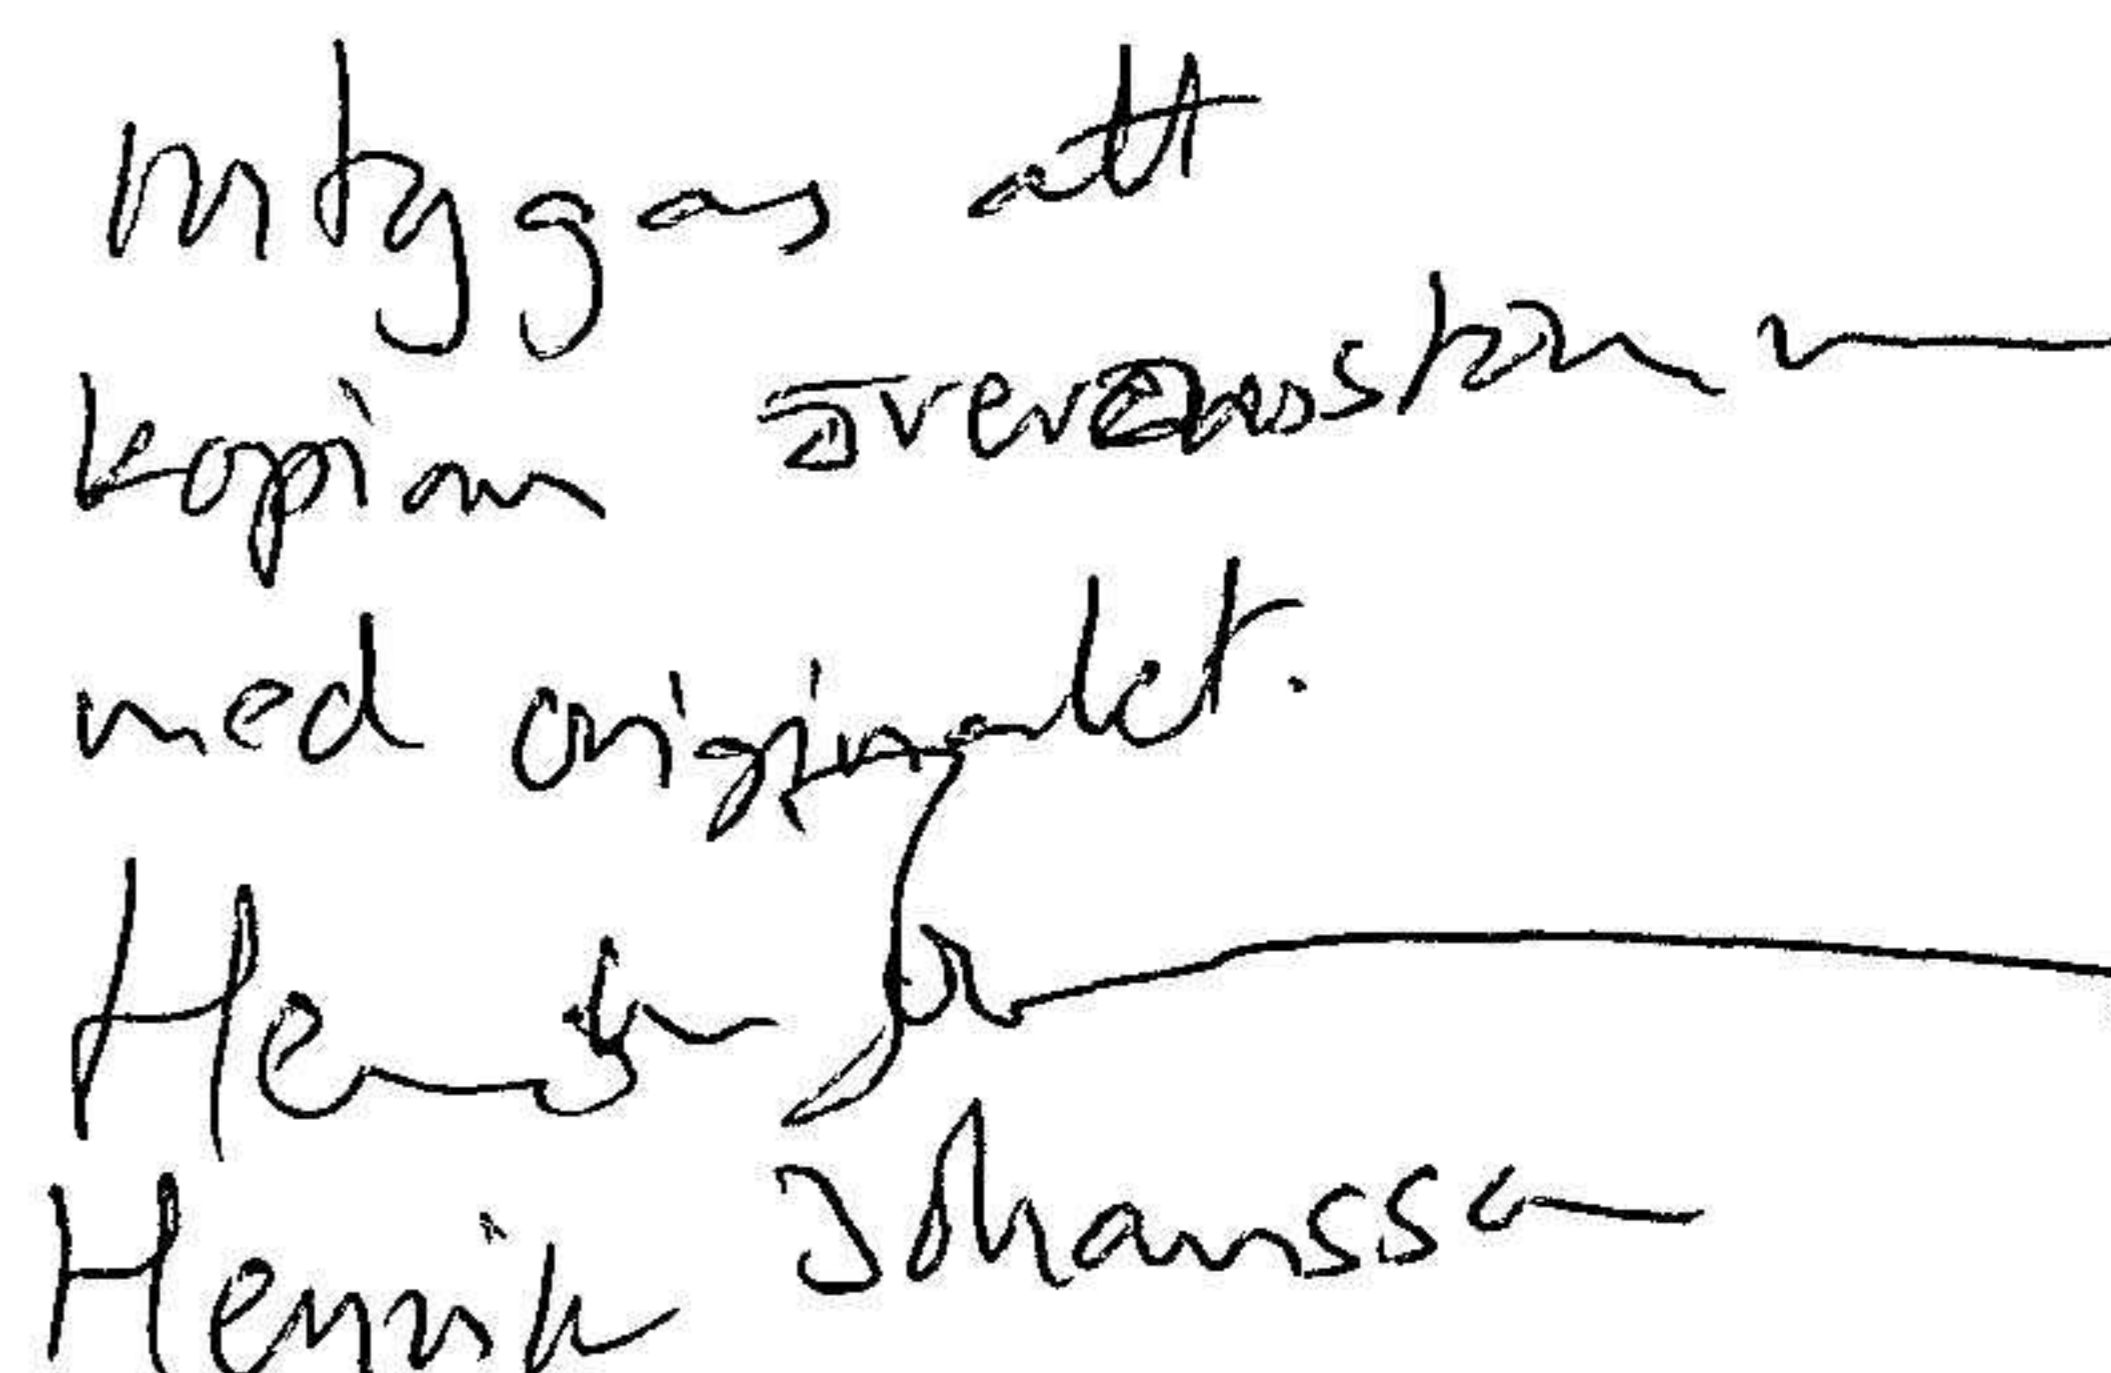 Intygas att
kopian överensstämmer
med originalet.
Henrik Jo
Henrik Johansson